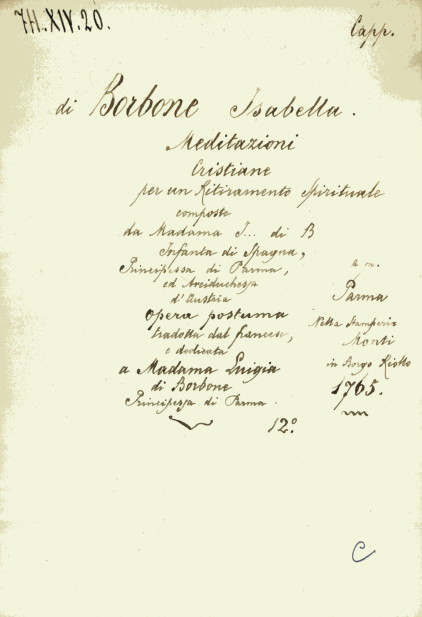 7H.XIV.20.
Capp.
di Borbone Isabella.
Meditazioni
Cristiane
per un Ritiramento Spirituale
composte
da Madama I... di B
Infanta di Spagna,
Principessa di Parma,
ed Arciduchessa
d'Austria
Opera postuma
tradotta dal francese,
e dedicata
a Madama Luigia
di Borbone
Principessa di Parma.
12.º
Parma
Nella Stamperia
Monti
in Borgo Riolto
1765.
C